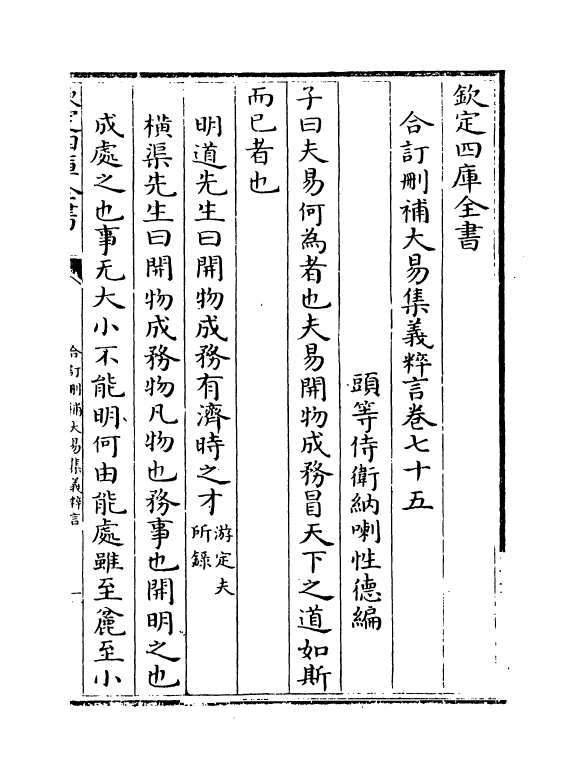 欽定四庫全書
合訂刪補大易集義粹言卷七十五
頭等侍衛納喇性德編
子曰夫易何為者也夫易開物成務冒天下之道如斯
而已者也
明道先生曰開物成務有濟時之才游定夫
所録
橫渠先生曰開物成務物凡物也務事也開明之也
成處之也事无大小不能明何由能處雖至麄至小
欽定四庫全書
合訂刪補大易集義粹言
一